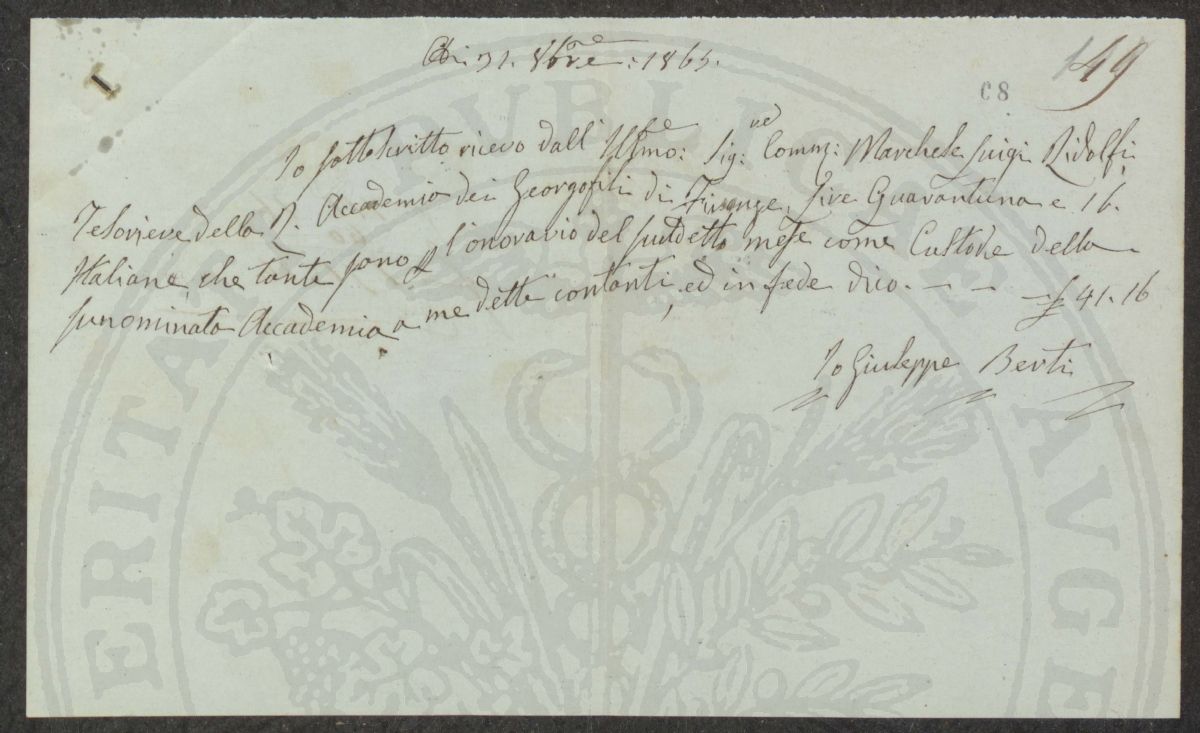 Adi 31. 8bre: 1865.
149
C8
Io sottoscritto ricevo dall' Illmo: Sig: Comm: Marchese Luigi Ridolfi
Tesoriere della R. Accademia dei Georgofili di Firenze, Lire Quarantuna e 16.
Italiane, che tante sono p l'onorario del suddetto mese come Custode della
sunominata Accademia a me dette contanti, ed in fede dico. — — — £ 41.16
Io Giuseppe Berti
PUBLICAE
ERITAT
AVGE